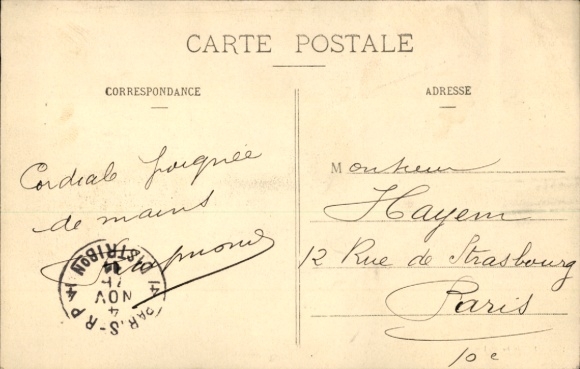 CARTE POSTALE
CORRESPONDANCE
ADRESSE
Cordiale poignée
de mains
Monsieur
Hayem
12 Rue de Strasbourg
Paris
10e
PARIS-R.P
DISTRIBON
4
NOV
14